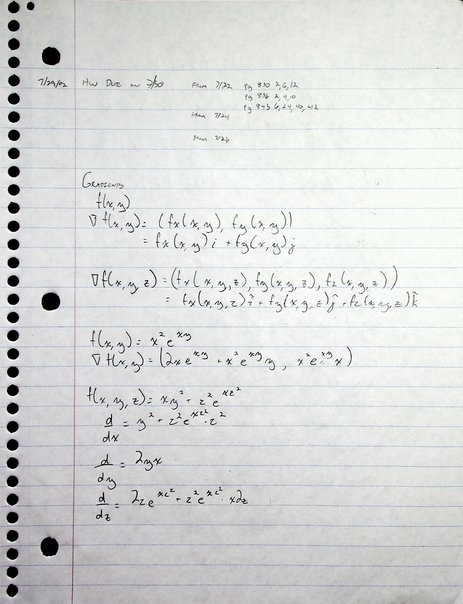 7/29/02 HW DUE on 7/30 From 7/22 Pg 830 2,6,12
Pg 836 2,4,0
Pg 843 6,24,40,42
From 7/24
From 7/26
GRADIENTS
f(x,y)
∇f(x,y) = (fx(x,y), fy(x,y))
= fx(x,y)i + fy(x,y)j
∇f(x,y,z) = (fx(x,y,z), fy(x,y,z), fz(x,y,z))
= fx(x,y,z)î + fy(x,y,z)ĵ + fz(x,y,z)k̂
f(x,y) = x²e^xy
∇f(x,y) = (2xe^xy + x²e^xy y, x²e^xy x)
f(x,y,z) = xy² + z²e^xz²
d/dx = y² + z²e^xz²·z²
d/dy = 2yx
d/dz = 2ze^xz² + z²e^xz²·x2z